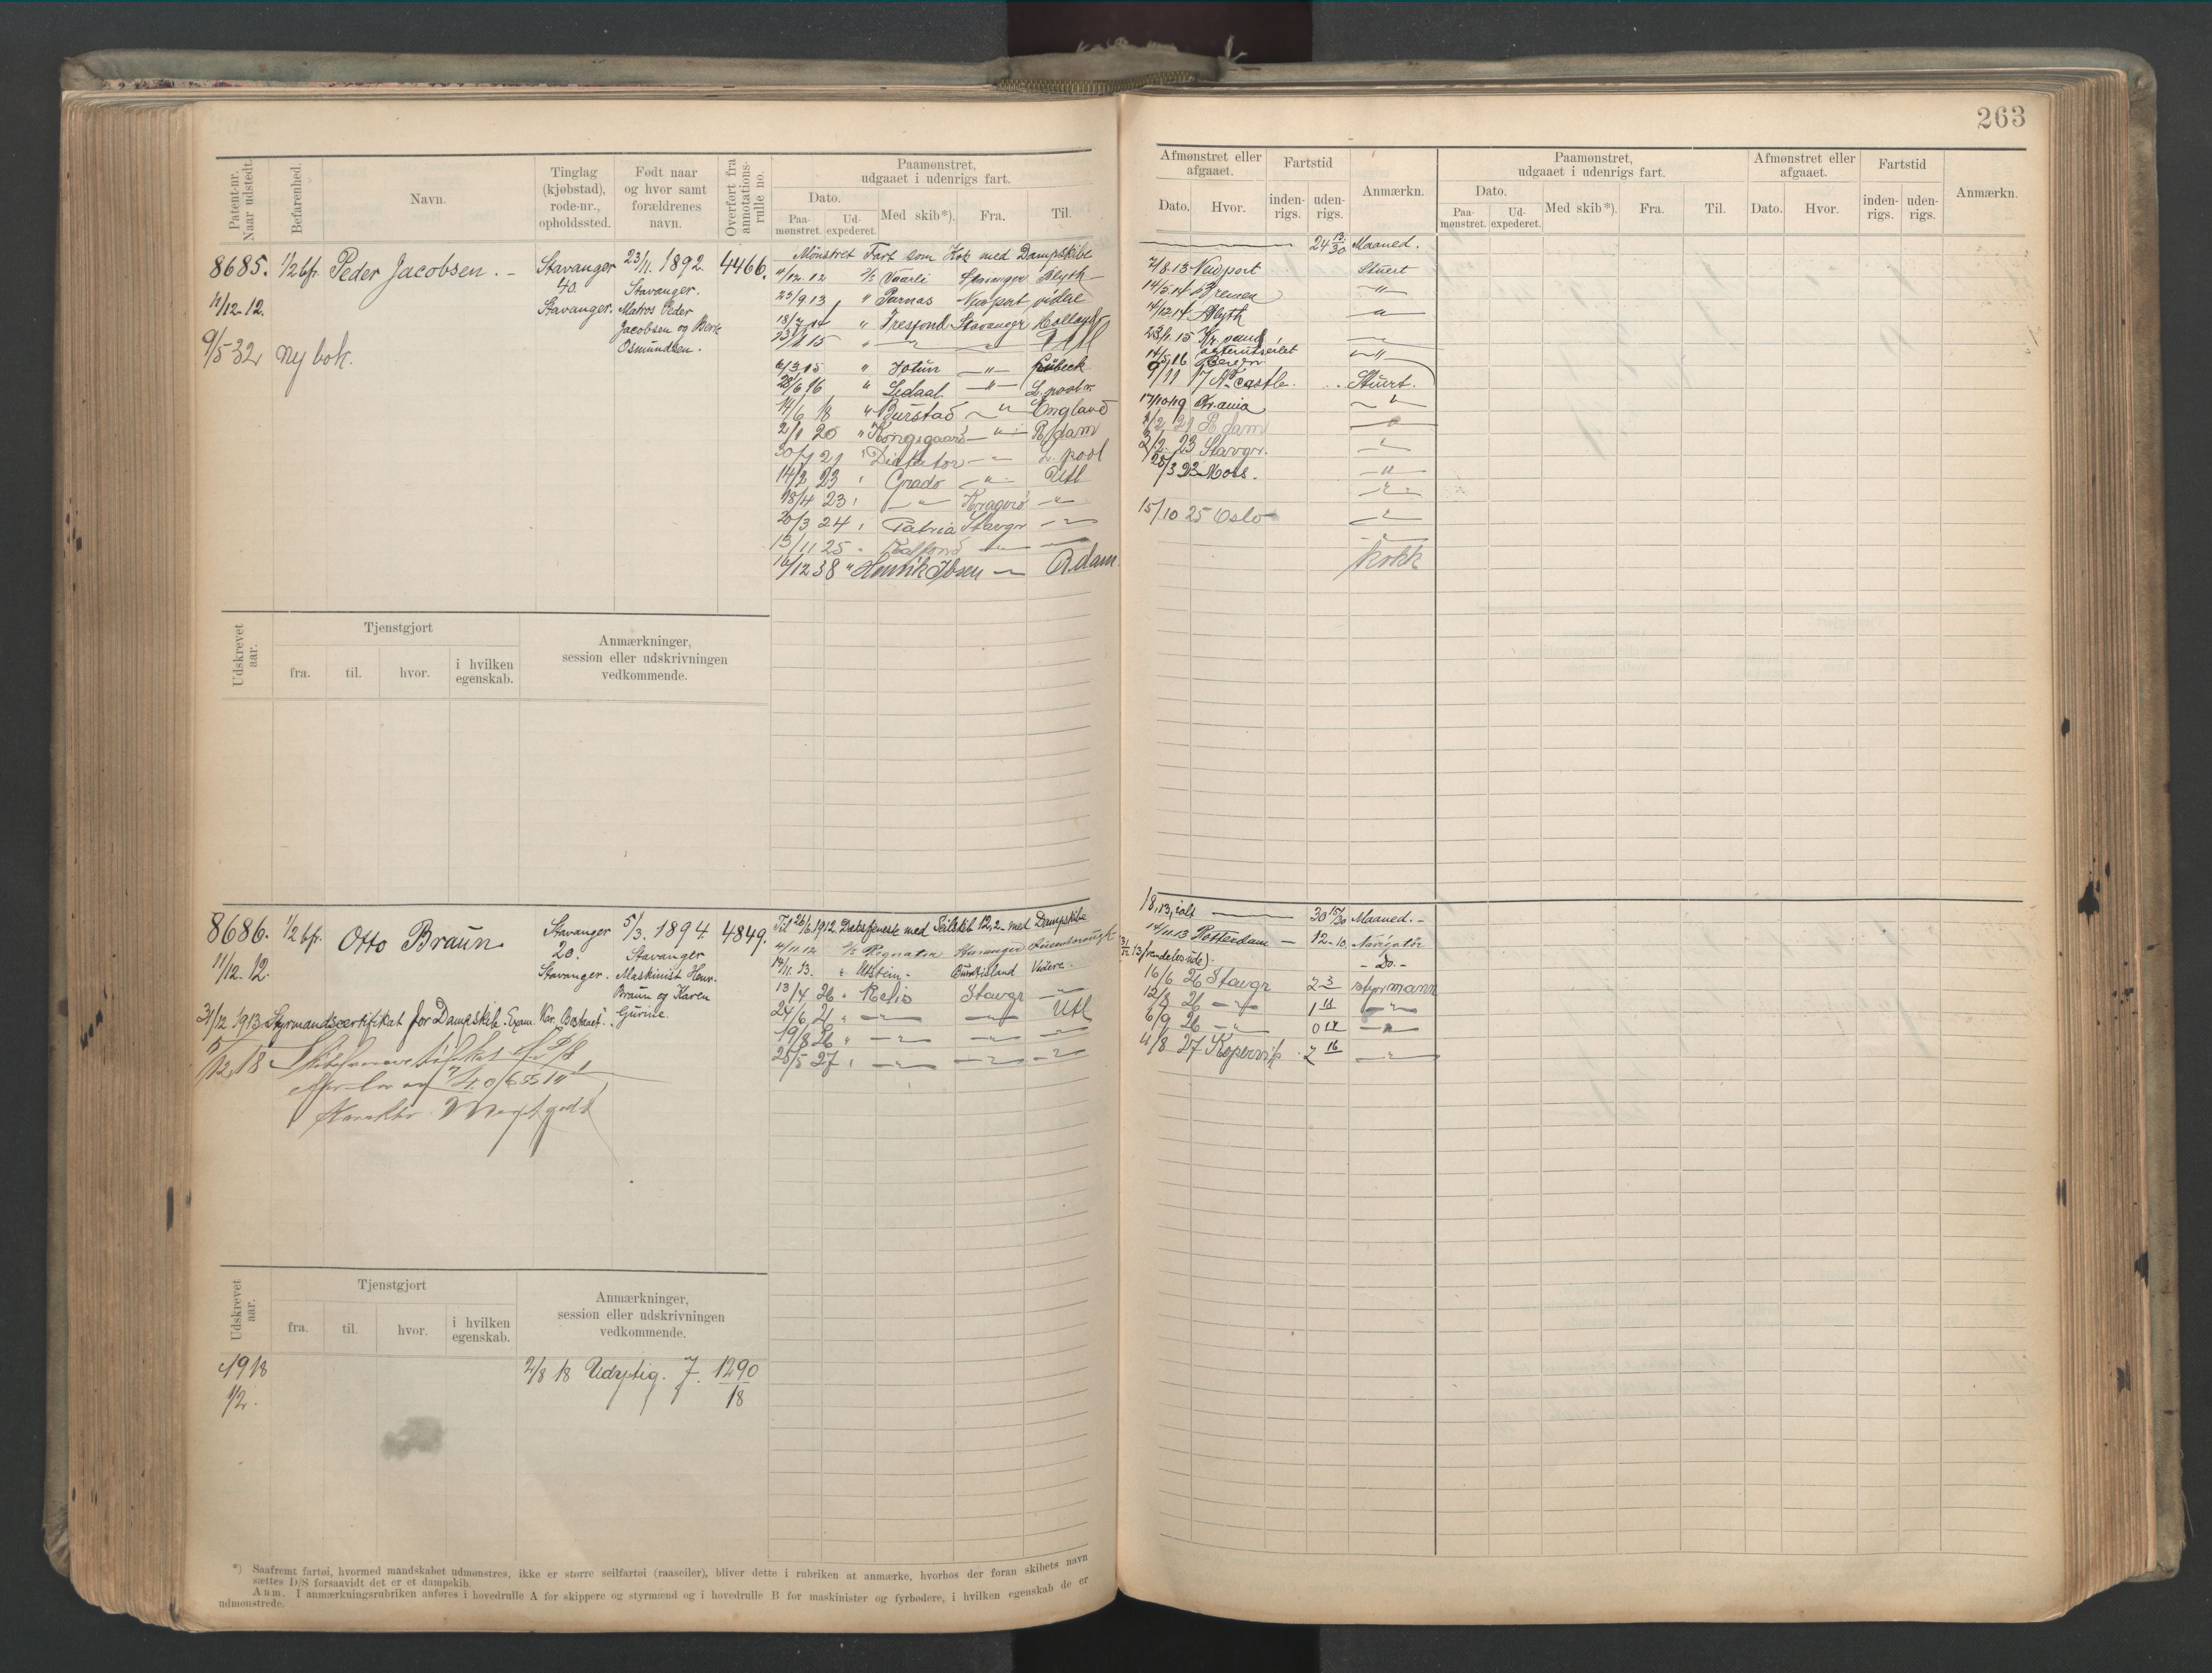 263
Patent-nr. Naar udstedt.
Befarenhed.
Navn.
Tinglag (kjøbstad), rode-nr., opholdssted.
Født naar og hvor samt forældrenes navn.
Overført fra annotations-rulle no.
Paamønstret, udgaaet i udenrigs fart.
Dato.
Paa-mønstret.
Ud-expederet.
Med skib*).
Fra.
Til.
Afmønstret eller afgaaet.
Dato.
Hvor.
Fartstid
inden-rigs.
uden-rigs.
Anmærkn.
Paamønstret, udgaaet i udenrigs fart.
Dato.
Paa-mønstret.
Ud-expederet.
Med skib*).
Fra.
Til.
Afmønstret eller afgaaet.
Dato.
Hvor.
Fartstid
inden-rigs.
uden-rigs.
Anmærkn.
8685. 1/2 bf. Peder Jacobsen. - Stavanger 23/11. 1892. 4466.
11/12-12. 40. Stavanger.
Stavanger. Matros Peder
Jacobsen og Berte
Osmundsen.
9/5 32 ny bok.
Mønstret Fart som Kok med Dampskibe 24 13/30 Maaned.
11/12.12 D/S Vaarli Stavanger Blyth 7/8.13 Newport Stuert
23/9 13 " Parnas Newport videre 14/5.14 Bremen -"-
18/7 14 " Tresfond Stavanger Holland 14/12.14 Blyth -"-
23/1 15 " -"- -"- 23/1. 15 Kr.sand
agterutseilet
6/3 15 " Jotun -"- Lübeck 14/5,16 -"-
28/6 16 " Ledaal -"- L.pool 9/11 17 N.Castle. Stuert.
14/6 18 " Burstad -"- England 17/10 19 Krania -"-
2/1 20 " Kongsgaard -"- R/dam 1/2 21 R.dam -"-
30/7 21 " Diktator -"- L.pool 3/2 23 Stavgr. -"-
14/2 23 " Grado -"- Utl 25/3 23 Moss. -"-
18/4 23 " -"- Kragerø -"- -"-
20/3 24 " Patria Stavgr -"- 15/10 25 Oslo -"-
13/11 25 "
16/12 38 " Henrik Ibsen -"- A.dam kokk
Udskrevet aar.
Tjenstgjort
fra.
til.
hvor.
i hvilken egenskab.
Anmærkninger, session eller udskrivningen vedkommende.
8686. 1/2 bf. Otto Braun. Stavanger 5/3. 1894. 4849.
11/12-12. 20. Stavanger
Stavanger. Maskinist Henr.
Braun og Karen
Gurine.
31/12 1913 Styrmandscertifikat for Dampskib. Exam. Kar. Bestaaet.
5/12,18
Karakter Meget godt
Til 26/6.1912 Dæksfjeneste med Seilskib 12,2 - med Dampskibe 18,13, ialt 30 15/30 Maaned.-
11/11.12 D/S Regnator Stavanger 14/11.13 Rotterdam - 12-10. Navigatør
14/11.13. " Utstein. Buratisland Videre. - Do.-
13/4 26 " Relis Stavgr -"- 16/6 26 Stavgr 2 3 styrmann
24/6 26 " -"- -"- Utl 12/8 26 -"- 1 18 -"-
19/8 26 " -"- -"- -"- 6/9 26 -"- 0 17 -"-
25/5 27 " -"- -"- -"- 11/8 27 Kopervik 2 16 -"-
Udskrevet aar.
Tjenstgjort
fra.
til.
hvor.
i hvilken egenskab.
Anmærkninger, session eller udskrivningen vedkommende.
1918 2/8 18 Udsptig. J. 1290/18
1/2.
*) Saafremt fartøi, hvormed mandskabet udmønstres, ikke er større seilfartøi (raaseiler), bliver dette i rubriken at anmærke, hvorhos der foran skibets navn
sættes D/S forsaavidt det er et dampskib.
Anm. I anmærkningsrubriken anføres i hovedrulle A for skippere og styrmænd og i hovedrulle B for maskinister og fyrbødere, i hvilken egenskab de er
udmønstrede.